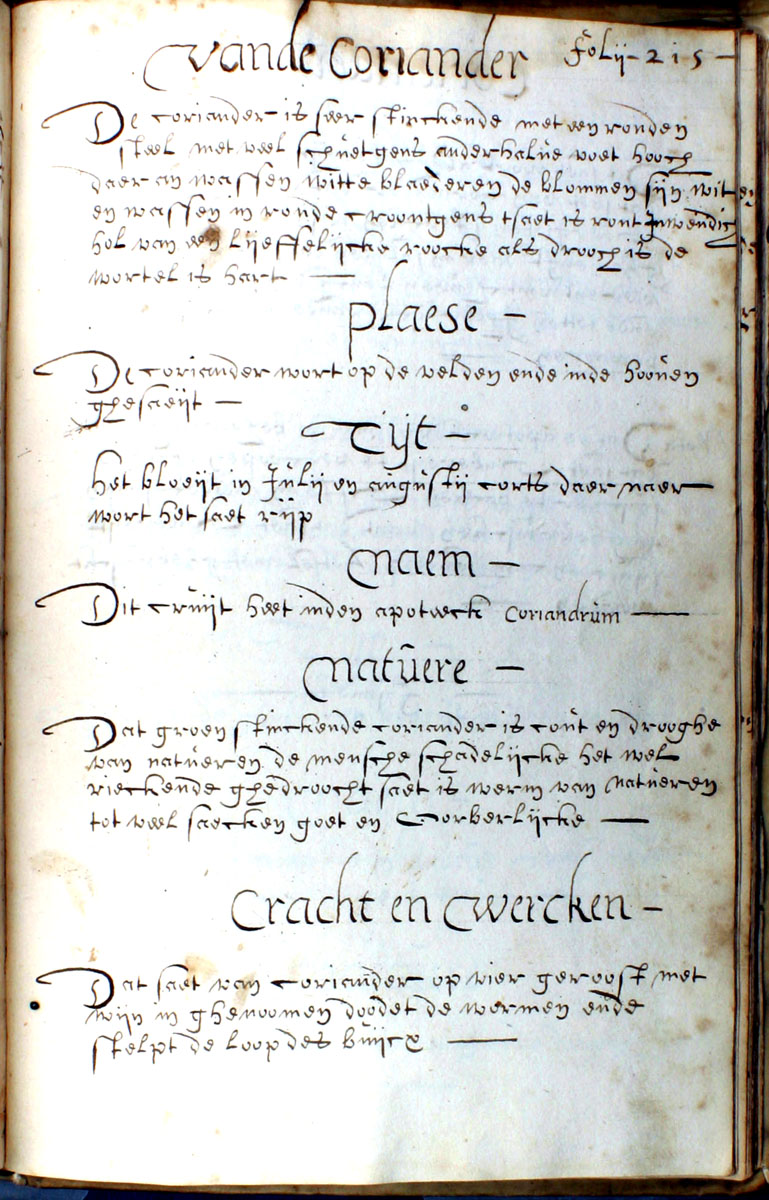 vande Coriander folij - 215 -
De coriander is seer stinckende met een ronden
steel met veel schuetgens anderhalve voet hooch
daer an wassen witte blaederen de blommen sijn wit
en wassen in ronde croontgens tsaet is ront Inwendich
hol van een lijeffelijcke roocke als drooch is de
wortel is hart —
plaese -
De coriander wort op de velden ende inde hooven
ghesaeijt —
Tijt -
het bloeijt in Julij en augustij corts daer naer
wort het saet rijp
Naem -
Dit cruijt heet inden apoteeck Coriandrum —
Natuere -
Dat groen stinckende coriander is cout en drooghe
van natueren de mensche schadelijcke het wel
rieckende ghedroocht saet is werm van natueren
tot veel saecken goet en Orberlijcke —
Cracht en wercken -
Dat saet van Coriander op vier geroost met
wijn in ghenoomen doodet de wermen ende
stelpt de loop des buijcx —